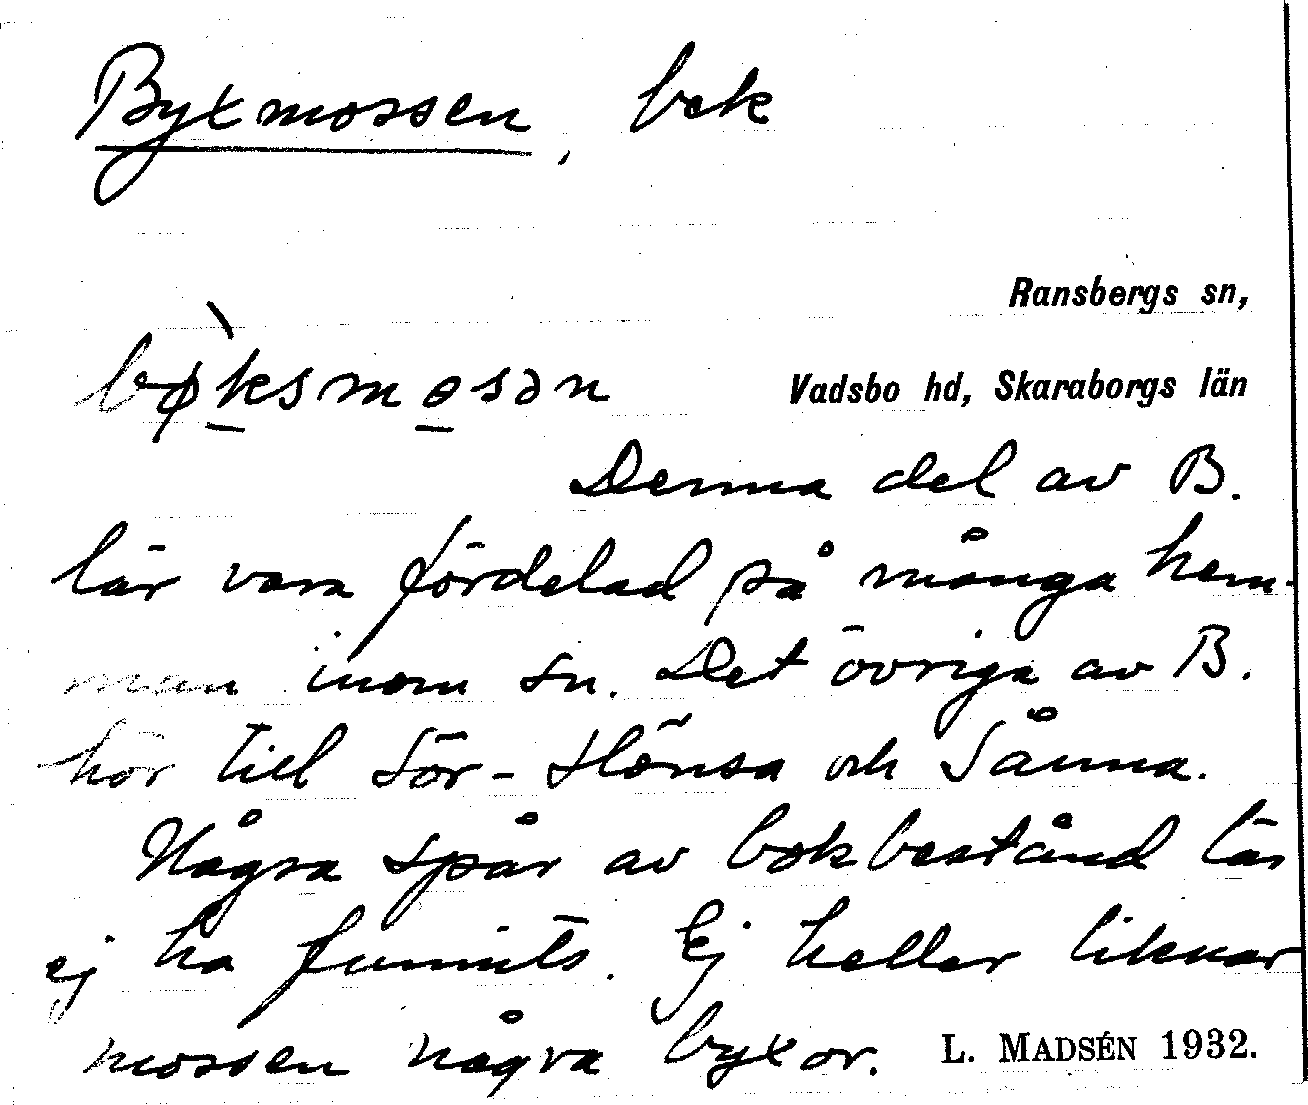 Byxmossen, bok
Ransbergs sn,
bø̀ksmosən
Vadsbo hd, Skaraborgs län
Denna del av B.
lär vara fördelad på många hem-
man inom sn. Det övriga av B.
hör till Sör-Hönsa och Sånna.
Några spår av bokbestånd lär
ej ha funnits. Ej heller liknar
mossen några byxor. L. MADSÉN 1932.